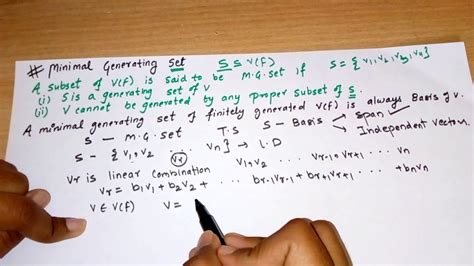 # Minimal Generating Set S ⊆ V(F)
A subset of V(F) is said to be M.G.set if S = { v1, v2, v3, vn}
(i) S is a generating set of V
(ii) V cannot be generated by any proper subset of S.
A minimal generating set of finitely generated V(F) is always Basis of V.
S — M.G.set T.S S — Basis Span
S — { v1, v2 ... vn} → L.D Independent Vectors.
vr is linear combination v1, v2 ... vr-1, vr+1 ... vn
vr = b1v1 + b2v2 + ... br-1vr-1 + br+1vr+1 ... + bnvn
v ∈ V(F) v =